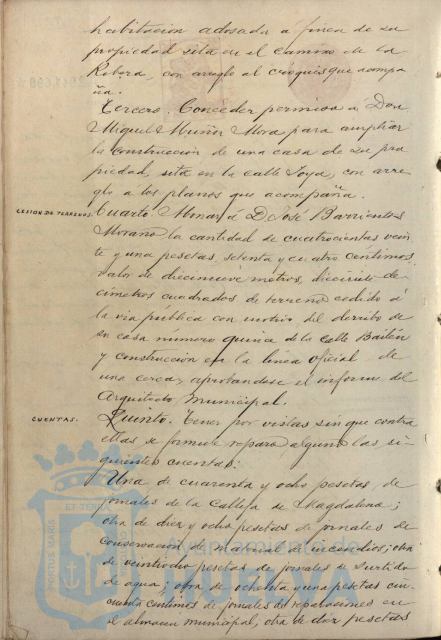 habitacion adosada a finca de su
propiedad sita en el camino de la
Ribera, con arreglo al croquis que acompa
ña.
Tercero. Conceder permiso a Don
Miguel Muñoz Mora para ampliar
la construccion de una casa de su pro
piedad, sita en la calle Joya, con arre
glo a los planos que acompaña.
CESION DE TERRENOS.
Cuarto. Abonar a D. José Barrientos
Morano la cantidad de cuatrocientas vein
te y una pesetas, setenta y cuatro centimos,
valor de diecinueve metros, diecisiete de
cimetros cuadrados de terreno cedido á
la via publica con motivo del derribo de
su casa numero quince de la calle Bailén
y construccion en la linea oficial de
una cerca, aprobandose el informe del
Arquitecto Municipal.
CUENTAS.
Quinto. Tener por vistas sin que contra
ellas se formule reparo alguno las si-
guientes cuentas:
Una de cuarenta y ocho pesetas de
jornales de la Calleja de Magdalena;
otra de diez y ocho pesetas de jornales de
conservacion de material a incendios; otra
de veintiocho pesetas de jornales de surtido
de agua; otra de ochenta y una pesetas cin-
cuenta centimos de jornales de reparaciones en
el almacen municipal, otra de diez pesetas
PORTUS MARIS ET TERRÆ
Ayuntamiento de